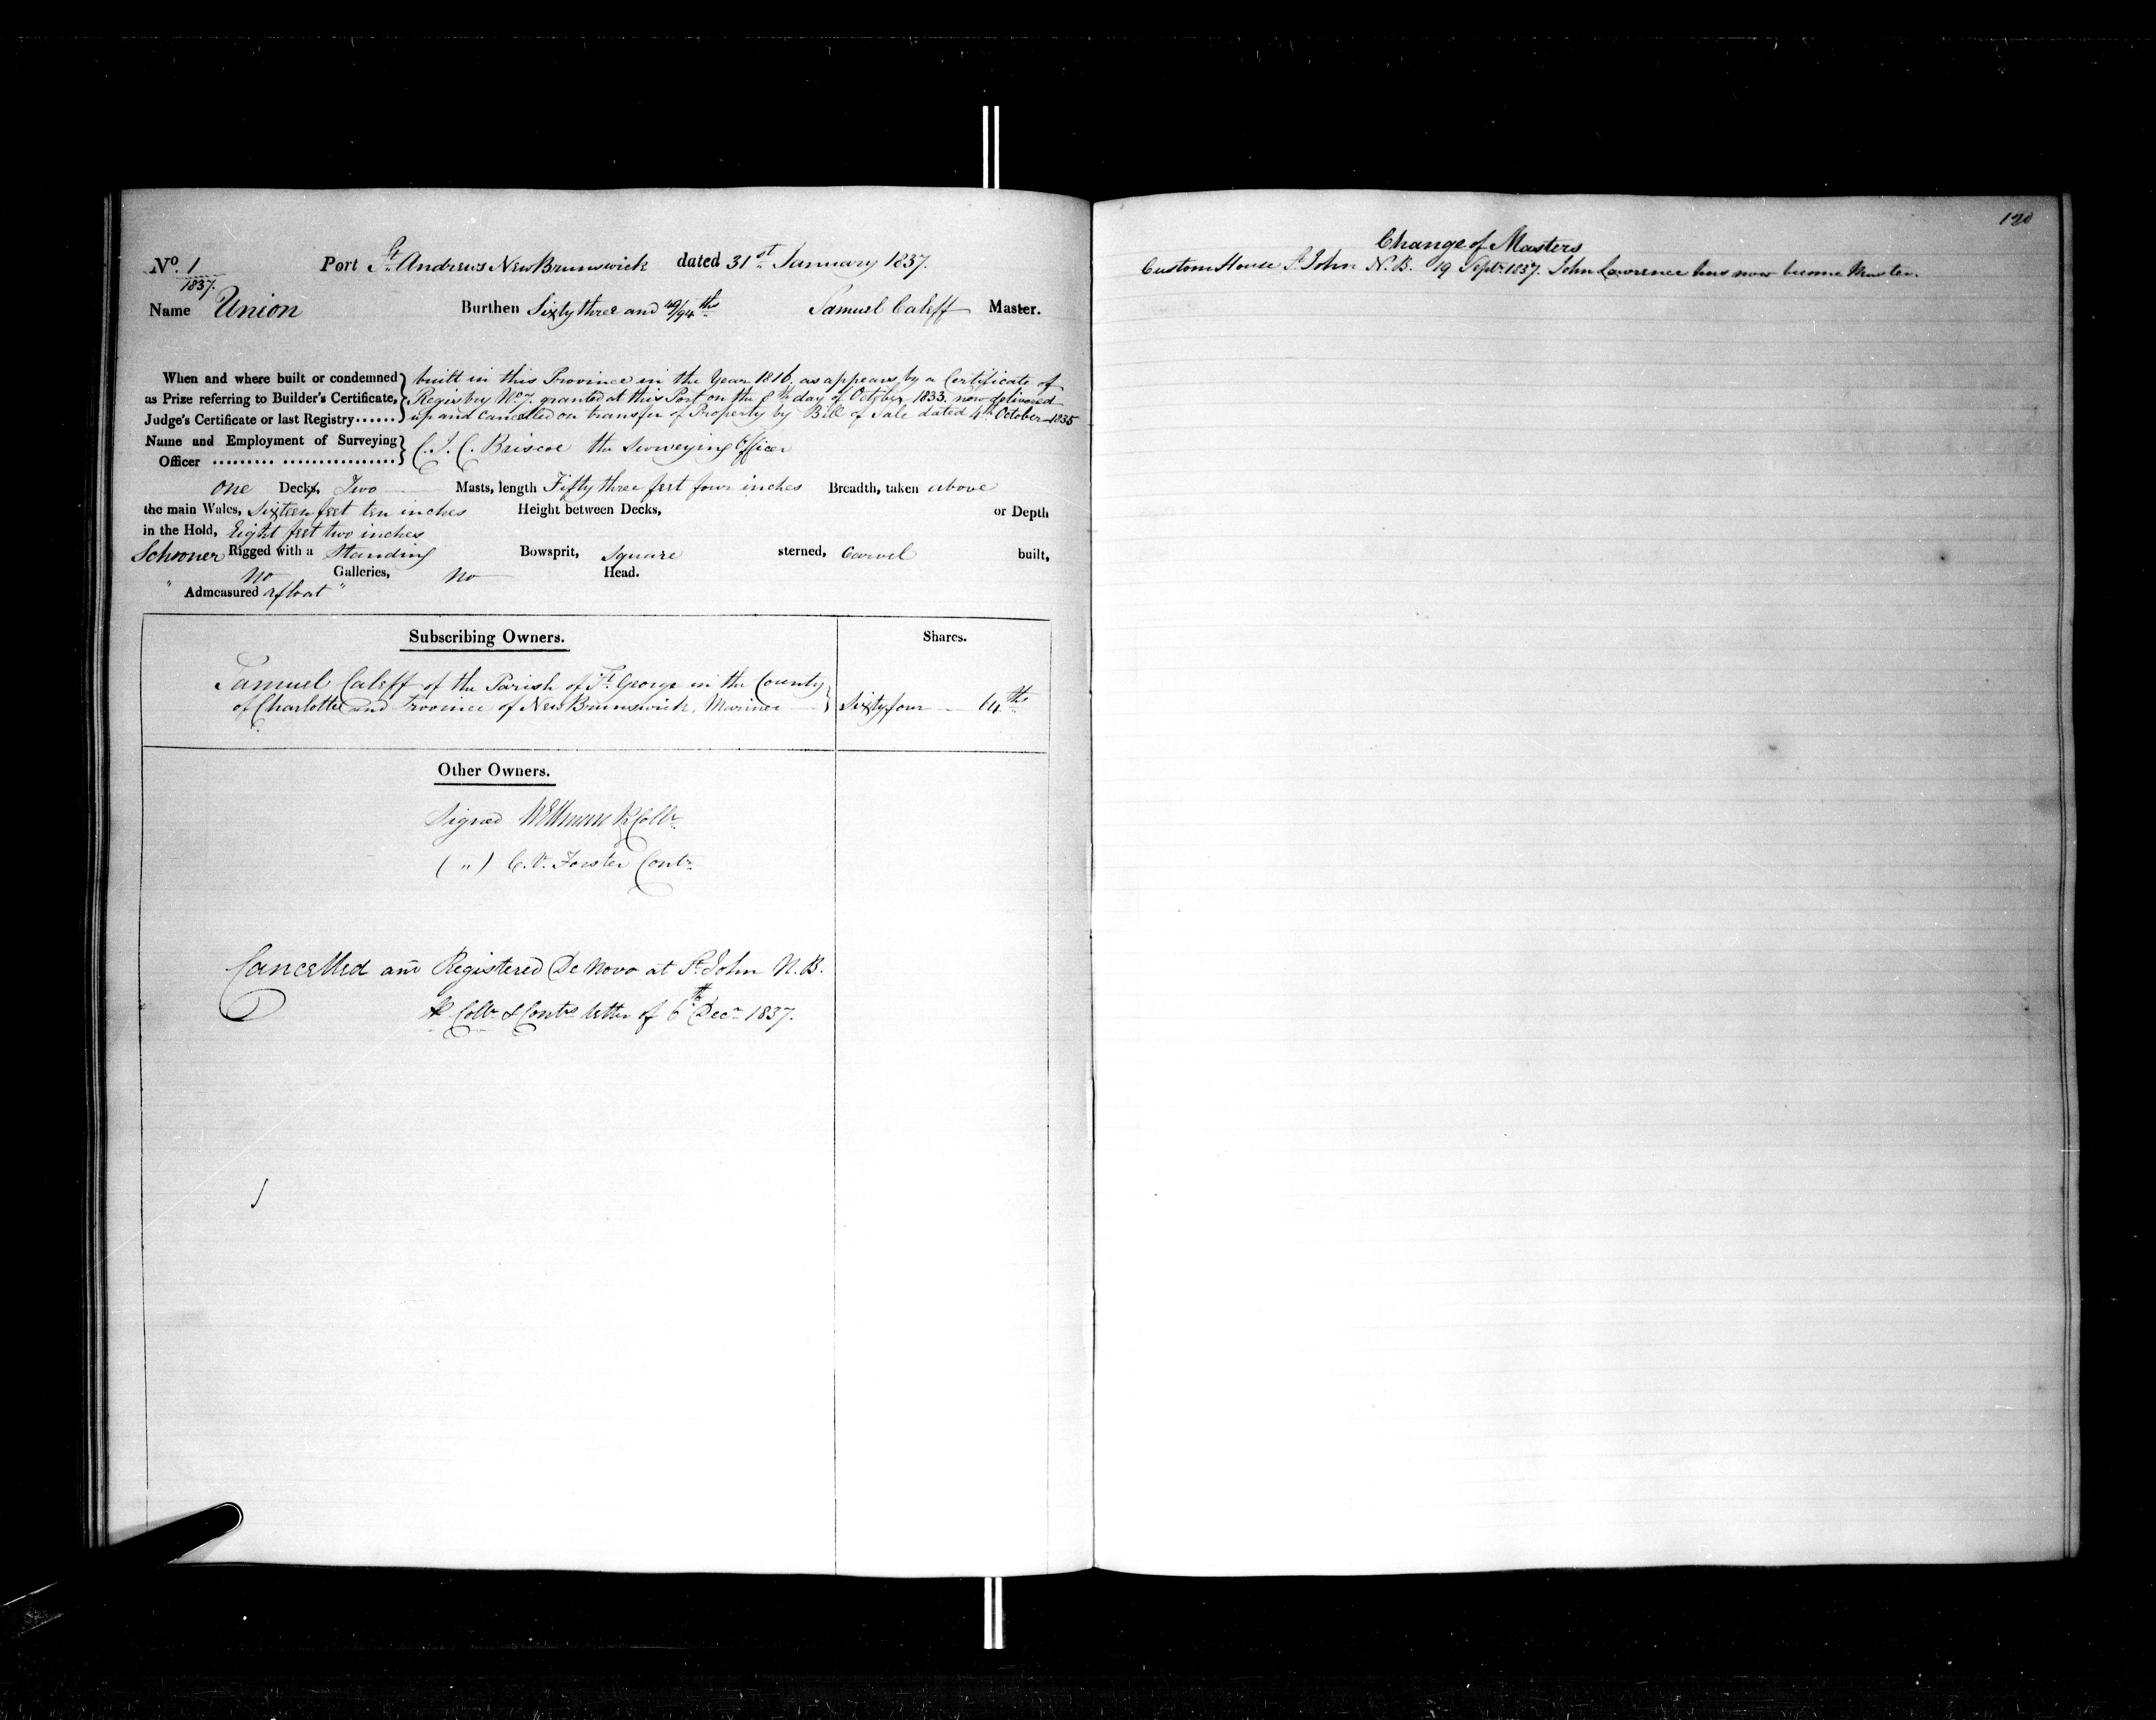 No. 1 Port St. Andrews New Brunswick dated 31st January 1837.
1837.
Name Union Burthen Sixty three and 49/94ths Samuel Caleff Master.
When and where built or condemned as Prize referring to Builder's Certificate, Judge's Certificate or last Registry......
built in this Province in the Year 1816. as appears by a Certificate of
Registry No. 7. granted at this Port on the 8th day of October 1833. now delivered
up and cancelled on transfer of Property by Bill of Sale dated 4th October 1835
Name and Employment of Surveying
Officer ......... ................. C. J. C. Briscoe the Surveying Officer
One Decks, Two Masts, length Fifty three feet four inches Breadth, taken above
the main Wales, Sixteen feet ten inches Height between Decks, or Depth
in the Hold, Eight feet two inches
Schooner Rigged with a Standing Bowsprit, Square sterned, Carvel built,
no Galleries, no Head.
" Admeasured afloat "
Subscribing Owners. Shares.
Samuel Caleff of the Parish of St. George in the County
of Charlotte and Province of New Brunswick, Mariner Sixty four 64ths
Other Owners.
Signed Collr.
( " ) C. V. Forster Contr.
Cancelled and Registered De Novo at St. John N. B.
Collr & Contrs letter of 6th Decr 1837.
120
Change of Masters
Custom House St. John N. B. 19 Septr. 1837. John Lawrence has now become Master.